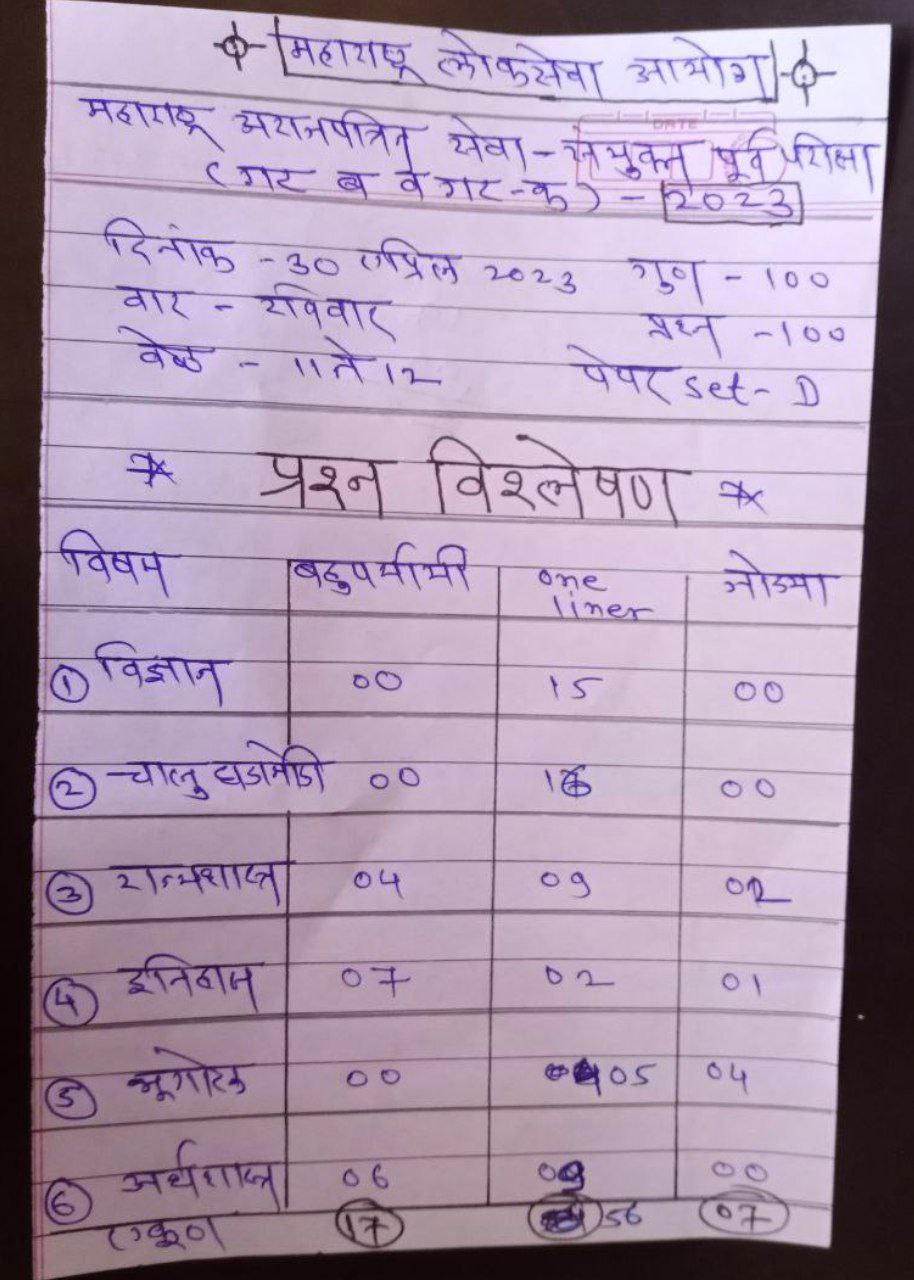 महाराष्ट्र लोकसेवा आयोग
DATE
महाराष्ट्र अराजपत्रित सेवा - संयुक्त पूर्व परीक्षा
(गट ब व गट-क) - 2023
दिनांक - 30 एप्रिल 2023 गुण - 100
वार - रविवार प्रश्न - 100
वेळ - 11 ते 12 पेपर set - D
* प्रश्न विश्लेषण *
विषय बहुपर्यायी one liner जोड्या
① विज्ञान 00 15 00
② चालु घडामोडी 00 16 00
③ राज्यशास्त्र 04 09 02
④ इतिहास 07 02 01
⑤ भूगोल 00 05 04
⑥ अर्थशास्त्र 06 09 00
एकूण 17 56 07